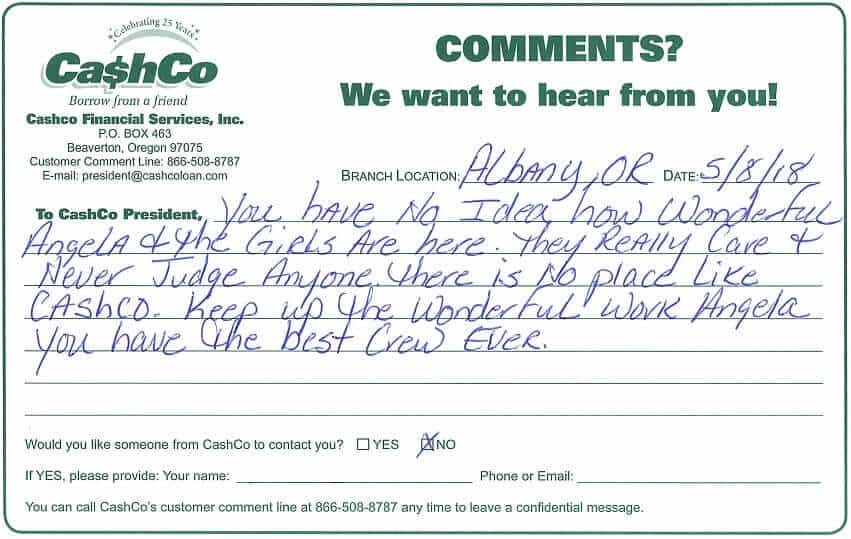 Celebrating 25 Years
Ca$hCo
Borrow from a friend
Cashco Financial Services, Inc.
P.O. BOX 463
Beaverton, Oregon 97075
Customer Comment Line: 866-508-8787
E-mail: president@cashcoloan.com
COMMENTS?
We want to hear from you!
BRANCH LOCATION: Albany, OR DATE: 5/8/18
To CashCo President, You have No Idea how Wonderful
Angela & the Girls Are here. They Really Care &
Never Judge Anyone. there is No place Like
CAshco. Keep up the Wonderful Work Angela
You have the best Crew Ever.
Would you like someone from CashCo to contact you? YES NO
If YES, please provide: Your name: Phone or Email:
You can call CashCo's customer comment line at 866-508-8787 any time to leave a confidential message.